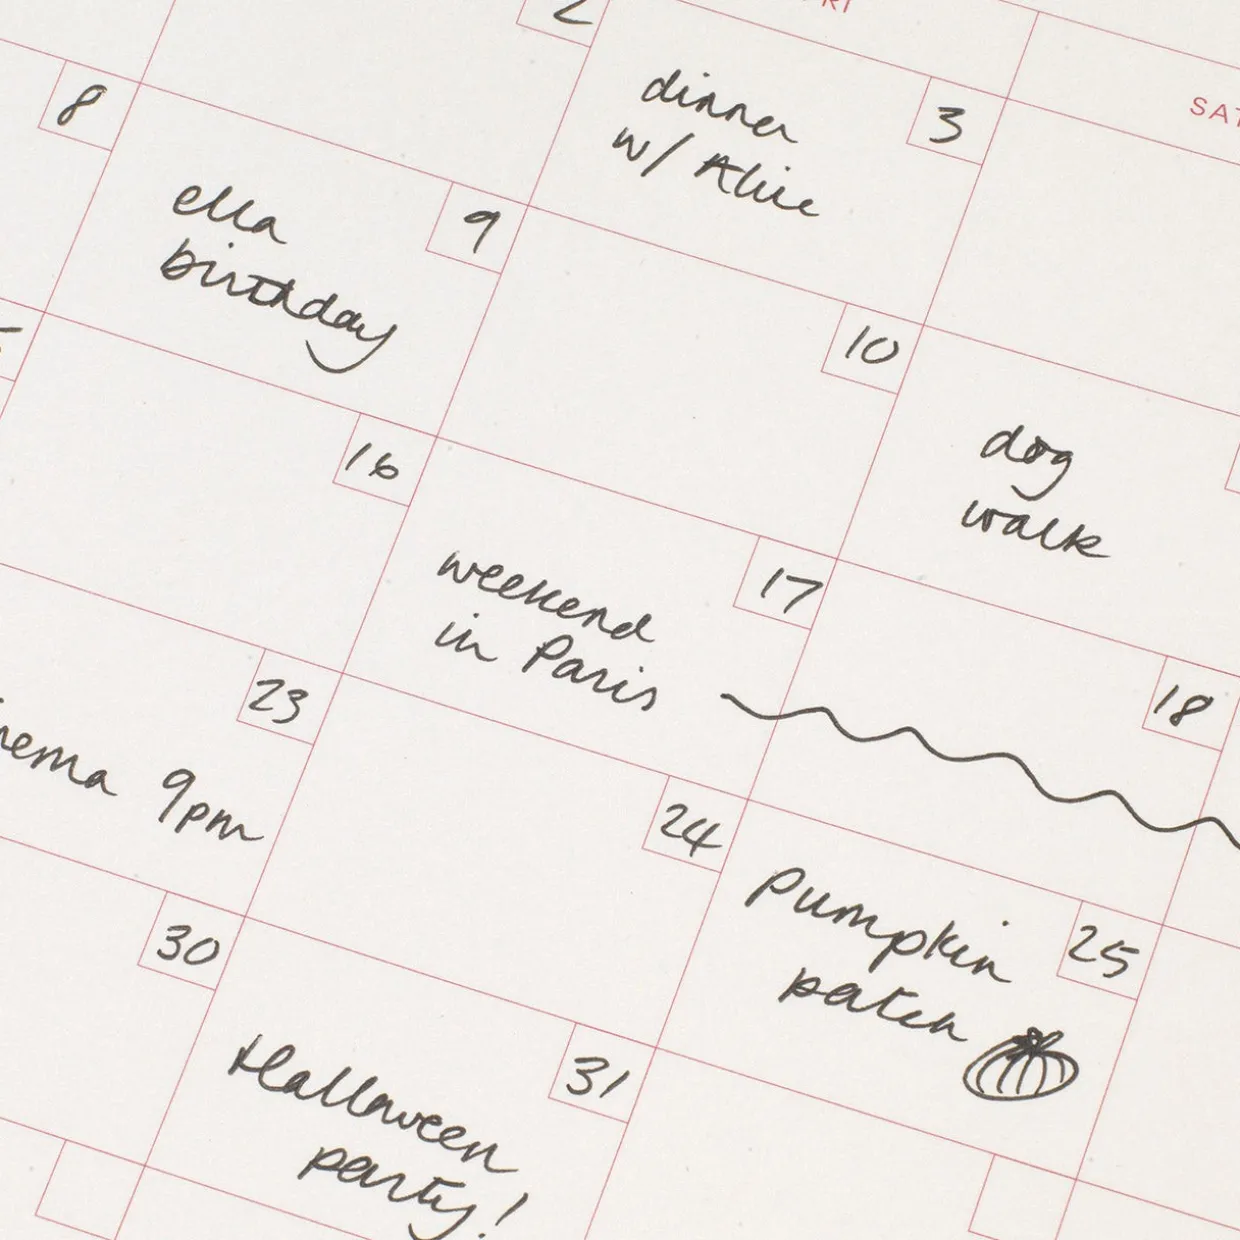 2
RI
3
SAT
dinner
w/ Alice
8
9
ella
birthday
10
dog
walk
16
17
weekend
in Paris
18
23
nema 9pm
24
25
Pumpkin
patch
30
31
Halloween
party!